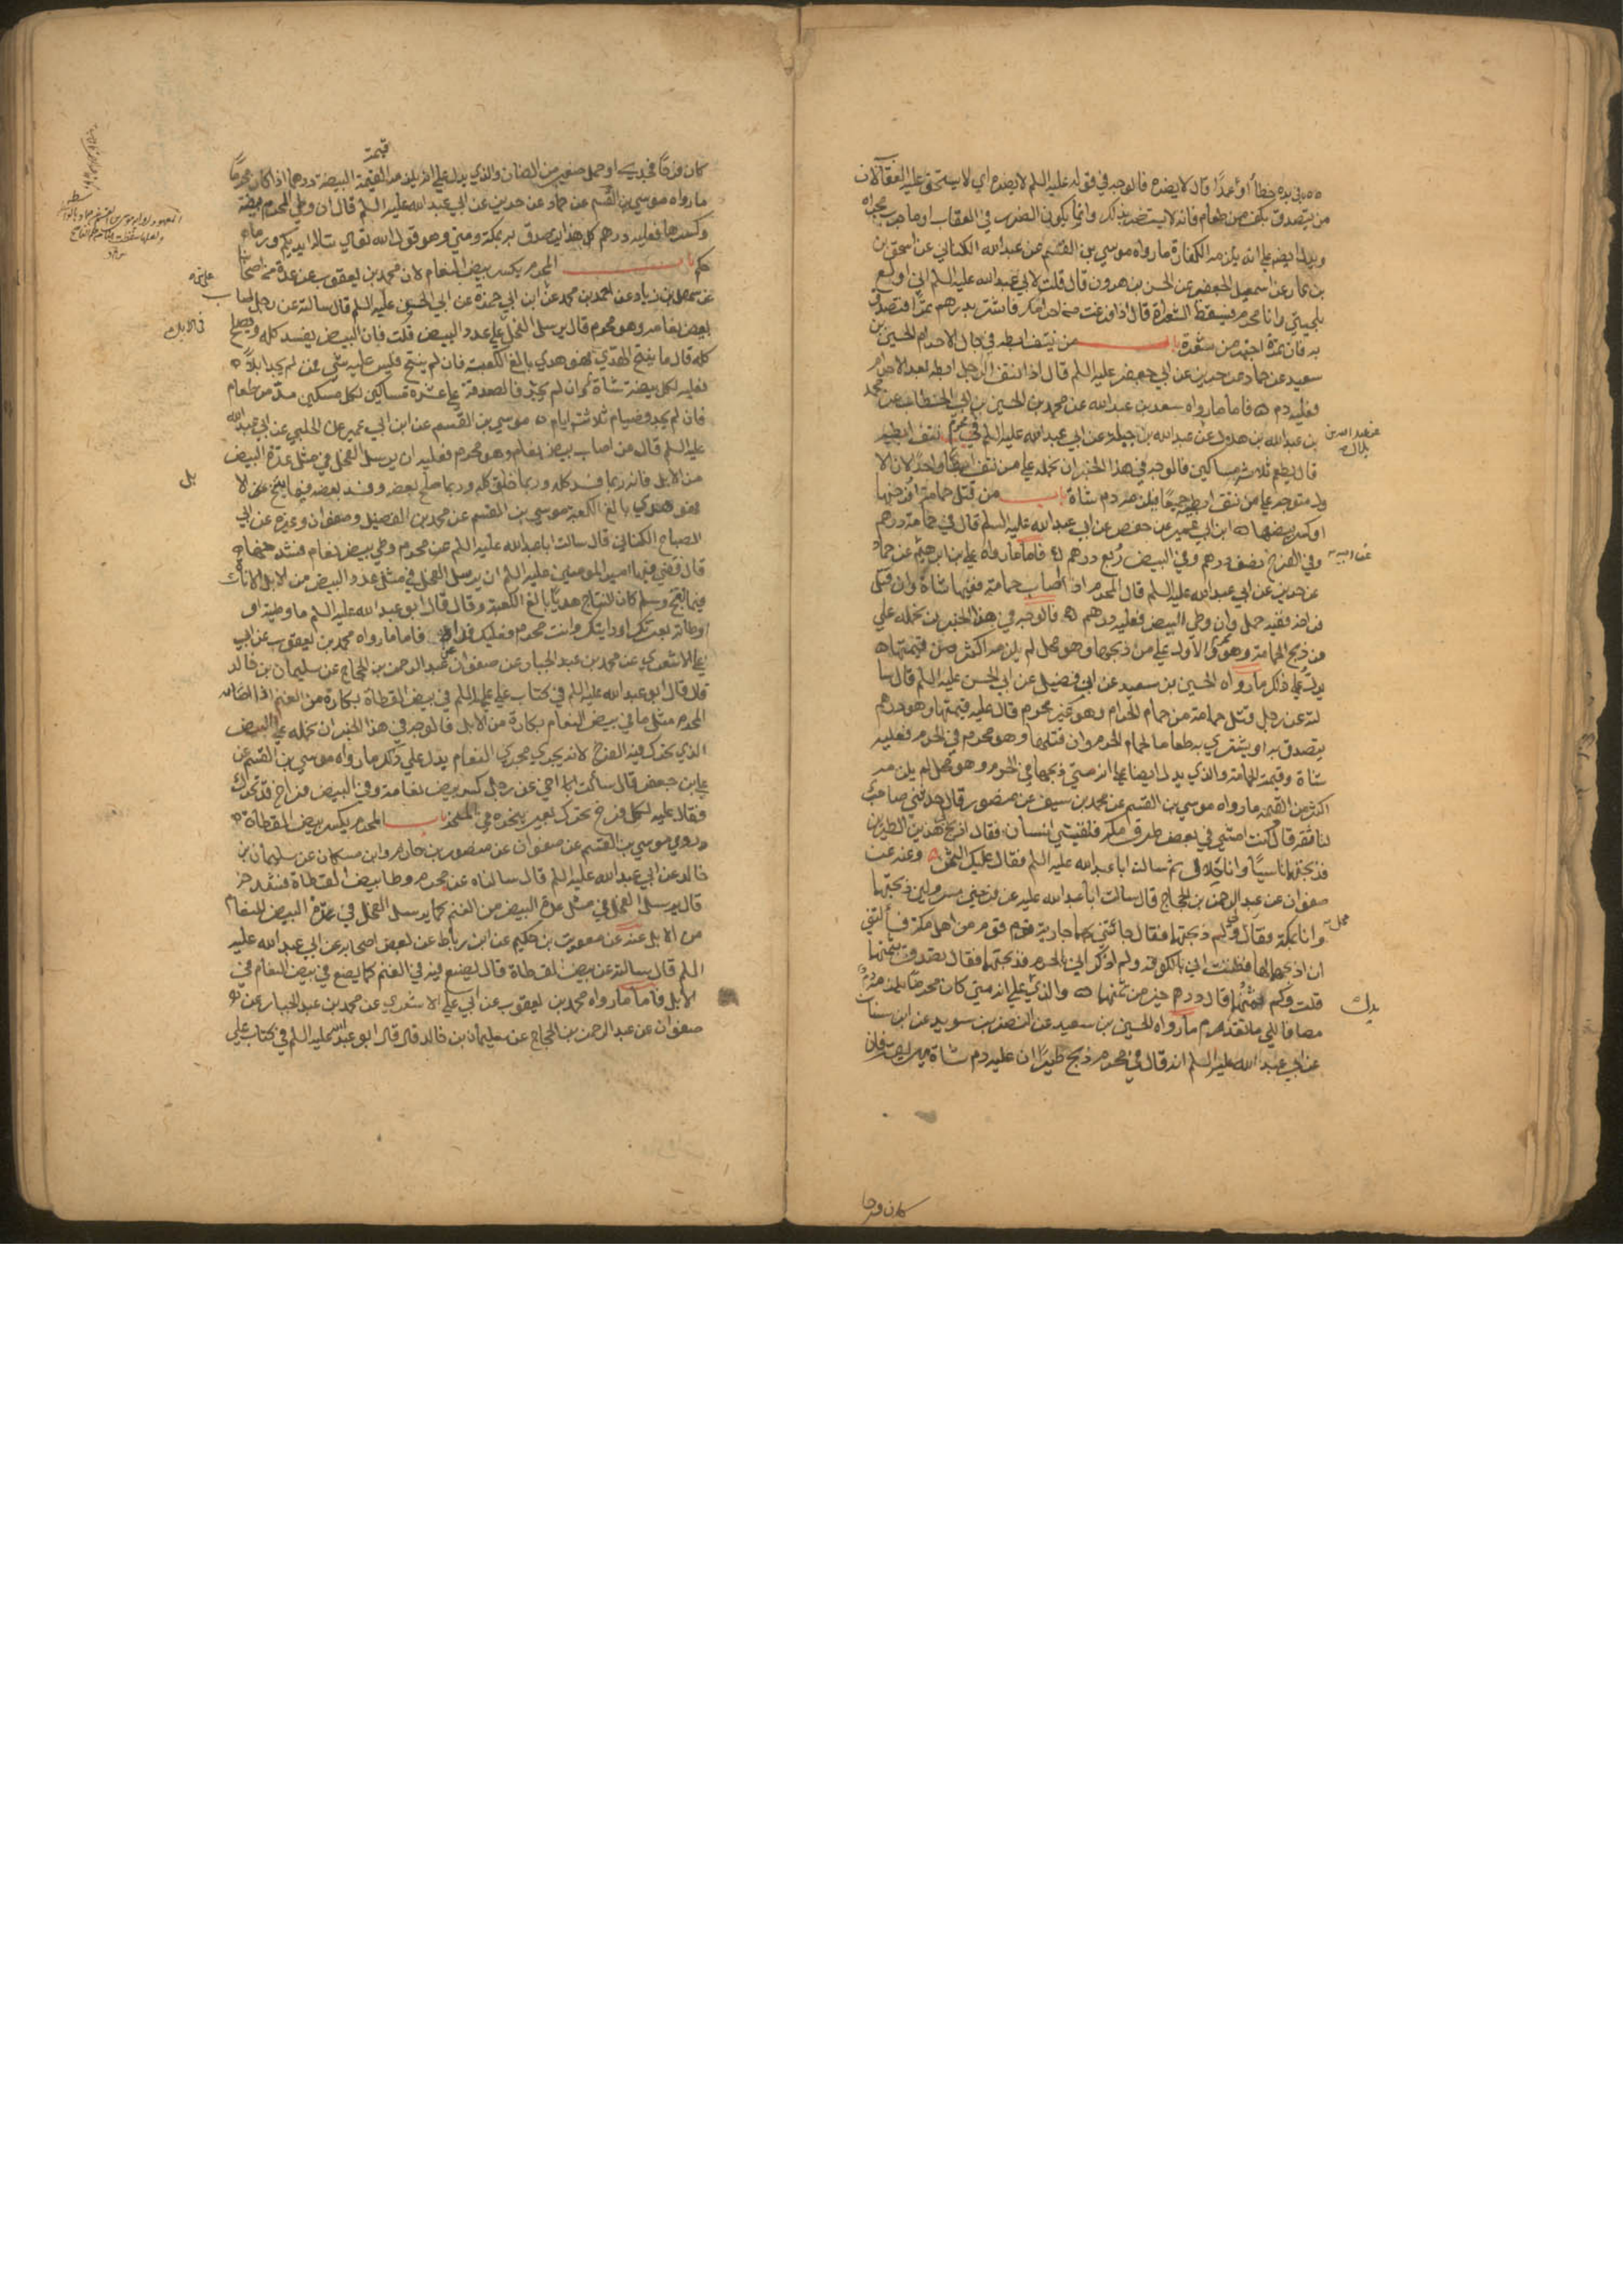 من يتصدق بكف من طعام فانه لا يستضر بذلك وانما يكون الضرر في العقاب او ما
ويدل ايضا على انه يلزمه الكفارة ما رواه موسي بن القسم عن عبدالله الكناني عن اسحق بن
بن عمار عن اسمعيل الجعفي عن الحسن بن هرون قال قلت لابي عبدالله عليه السلم اني اولع
بلحيتي وانا محرم فيسقط الشعرات قال اذا فرغت من احرامك فاشتر بدرهم تمرا فتصدق
به فان تمرة اجزء من شعرة باب من ينتف ابطه في حال الاحرام الحسين بن
سعيد عن حماد عن حريز عن ابي جعفر عليه السلم قال اذا نتف الرجل ابطه بعد الاحرام
فعليه دم فاما ما رواه سعد بن عبدالله عن محمد بن الحسين بن ابي الخطاب عن محمد
بن عبدالله بن هلال عن عبدالله بن جبلة عن ابي عبدالله عليه السلم في محرم نتف ابطه
قال يطعم ثلاثة مساكين فالوجه في هذا الخبر ان نحمله علي من نتف ابطا واحدا لان الا
ول متوجه علي من نتف ابطيه جميعا فيلزمه دم شاة باب من قتل حمامة او فرخها
او كسر بيضها ابن ابي عمير عن حفص عن ابي عبدالله عليه السلم قال في حمامة درهم
وفي الفرخ نصف درهم وفي البيض ربع درهم فاما ما رواه علي بن ابرهيم عن حماد
عن حريز عن ابي عبدالله عليه السلم قال المحرم اذا اصاب حمامة ففيها شاة وان قتل
فراخه ففيه حمل وان وطي البيض فعليه درهم فالوجه في هذا الخبر ان نحمله علي
من ذبح الحمامة وهو محرم والاول علي من ذبحها وهو محل لم يلزمه اكثر من قيمتها
يدل علي ذلك ما رواه الحسين بن سعيد عن ابن فضيل عن ابي الحسن عليه السلم قال سا
لته عن رجل قتل حمامة من حمام الحرم وهو غير محرم قال عليه قيمتها وهو درهم
يتصدق به او يشتري به طعاما لحمام الحرم وان قتلها وهو محرم في الحرم فعليه
شاة وقيمة الحمامة والذي يدل ايضا علي انه متي ذبحها في الحرم وهو محل لم يلزمه
اكثر من القيمة ما رواه موسي بن القسم عن محمد بن سيف عن منصور قال حدثني صاحب
لنا ثقة قال كنت امشي في بعض طرق مكة فلقيني انسان فقال اذبح لي هذين الطيرين
فذبحتهما ناسيا وانا حلال ثم سالت ابا عبدالله عليه السلم فقال عليك الثمن وعنه عن
صفوان عن عبد الرحمن بن الحجاج قال سالت ابا عبدالله عليه عن فرخين مسرولين ذبحتهما
وانا بمكة فقال لي لم ذبحتهما فقال جائتني بهما جارية قوم من اهل مكة فسألتني
ان اذبحهما لها فظننت اني بالكوفة ولم اذكر اني بالحرم فذبحتهما فقال تصدق بثمنهما
قلت وكم ثمنهما قال درهم خير من ثمنهما والذي علي انه متي كان محرما يلزمه دم
مضافا الي ما تقدم ما رواه الحسين بن سعيد عن النضر بن سويد عن ابن سنان
عن ابي عبدالله عليه السلم انه قال في محرم ذبح طيرا ان عليه دم شاة يهريقه فان
كان فرخا
كان فرخا فجدي او حمل صغير من الضان والذي يدل علي انه يلزمه القيمة البيضة درهم اذا كان محرما
قيمة
ما رواه موسي بن القسم عن حماد عن حريز عن ابي عبدالله عليه السلم قال ان وطي المحرم بيضة
وكسرها فعليه درهم كل هذا يتصدق به بمكة ومني وهو قول الله تعالي تناله ايديكم ورما
حكم باب المحرم يكسر بيض النعام لان محمد بن يعقوب عن عدة من اصحابنا
عن سهل بن زياد عن احمد بن محمد عن ابن ابي حمزة عن ابي الحسن عليه السلم قال سالته عن رجل اصاب
بيض نعامة وهو محرم قال يرسل الفحل علي عدد البيض قلت فان البيض يفسد كله ويصلح
كله قال ما ينتج الهدي فهو هدي بالغ الكعبة فان لم ينتج فليس عليه شي فمن لم يجد ابلا
فعليه لكل بيضة شاة فان لم يجد فالصدقة علي عشرة مساكين لكل مسكين مد من طعام
فان لم يجد فصيام ثلاثة ايام موسي بن القسم عن ابن ابي عمير عن الحلبي عن ابي عبدالله
عليه السلم قال من اصاب بيض نعام وهو محرم فعليه ان يرسل الفحل في مثل عدة البيض
من الابل فانه ربما فسد كله وربما خلق كله وربما صلح بعضه وفسد بعضه فما ينتج
فهو هدي بالغ الكعبة موسي بن القسم عن محمد بن الفضيل وصفوان وغيره عن ابي
الصباح الكناني قال سالت ابا عبدالله عليه السلم عن محرم وطي بيض نعام فشدخها
قال قضي فيها امير المومنين عليه السلم ان يرسل الفحل في مثل عدد البيض من الابل الاناث
فما لقح وسلم كان النتاج هديا بالغ الكعبة وقال قال ابو عبدالله عليه السلم ما وطيته او
اوطاته بعيرك او دابتك وانت محرم فعليك فداه فاما ما رواه محمد بن يعقوب عن ابي
علي الاشعري عن محمد بن عبد الجبار عن صفوان عن عبد الرحمن بن الحجاج عن سليمان بن خالد
قال قال ابو عبدالله عليه السلم في كتاب علي عليه السلم في بيض القطاة بكارة من الغنم اذا اصابه
المحرم مثل ما في بيض النعام بكارة من الابل فالوجه في هذا الخبر ان نحمله علي البيض
الذي يتحرك فيه الفرخ لانه يجري مجري النعام يدل علي ذلك ما رواه موسي بن القسم عن
علي بن جعفر قال سالت اخي عن رجل كسر بيض نعامة وفي البيض فراخ قد تحرك
فقال عليه لكل فرخ تحرك بعير ينحره في المنحر باب المحرم يكسر بيض القطاة
روي موسي بن القسم عن صفوان عن منصور بن حازم وابن مسكان عن سليمان بن
خالد عن ابي عبدالله عليه السلم قال سالناه عن محرم وطا بيض القطاة فشدخه
قال يرسل الفحل في مثل عدة البيض من الغنم كما يرسل الفحل في عدة البيض للنعام
من الابل عنه عن معوية بن حكيم عن ابن رباط عن بعض اصحابه عن ابي عبدالله عليه
السلم قال سالته عن بيض القطاة قال يصنع فيه في الغنم كما يصنع في بيض النعام في
الابل فاما ما رواه محمد بن يعقوب عن ابي علي الاشعري عن محمد بن عبد الجبار عن
صفوان عن عبد الرحمن بن الحجاج عن سليمان بن خالد قال قال ابو عبدالله عليه السلم في كتاب علي